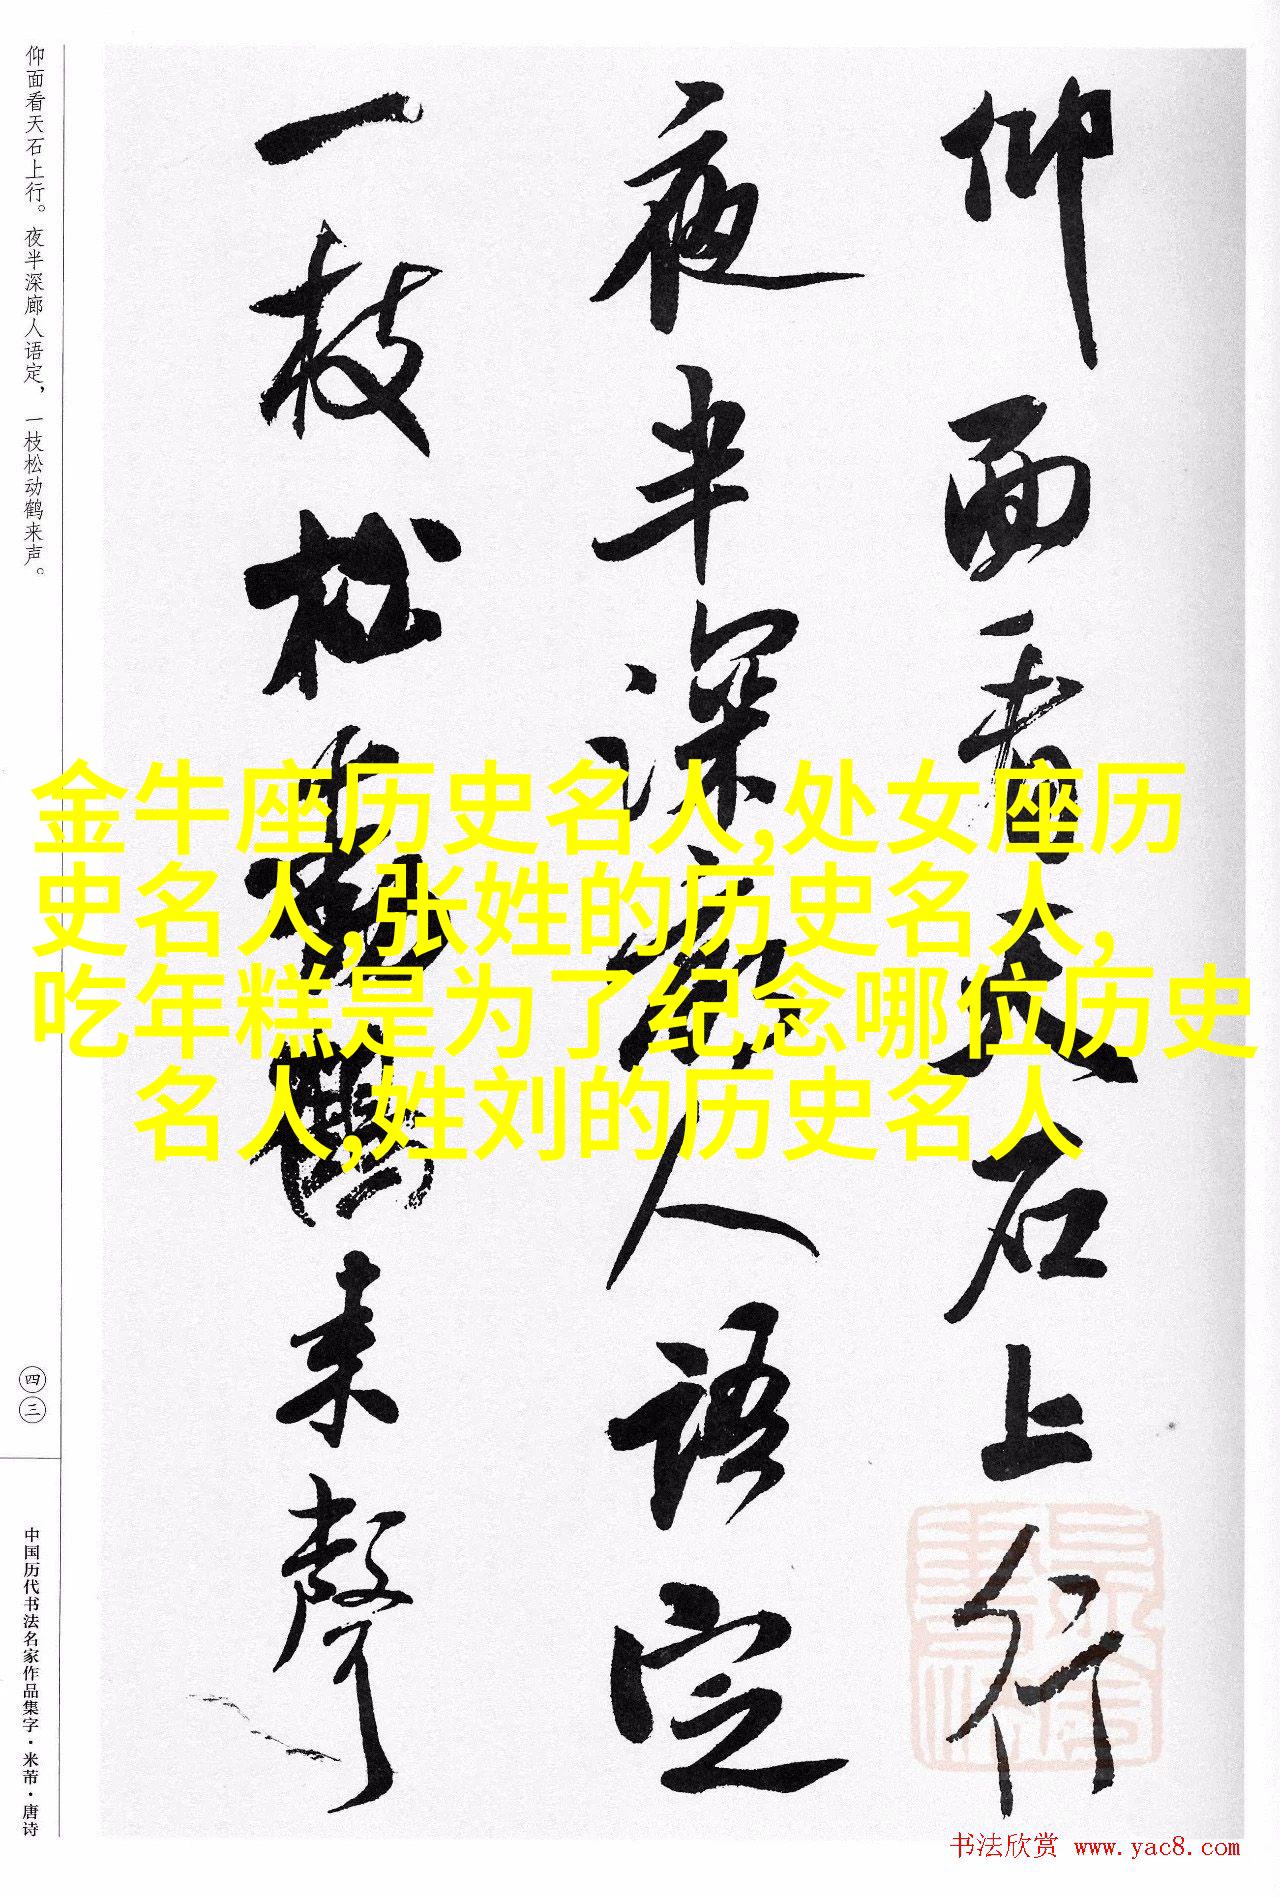 仰面看天石上行
夜半深廊人语定
一枝松动鹤来声
仰面看天石上行。夜半深廊人语定，一枝松动鹤来声。
四三
中国历代书法名家作品集字·米芾·唐诗
金牛座历史名人,处女座历
史名人,张姓的历史名人,
吃年糕是为了纪念哪位历史
名人,姓刘的历史名人
书法欣赏 www.yac8.com